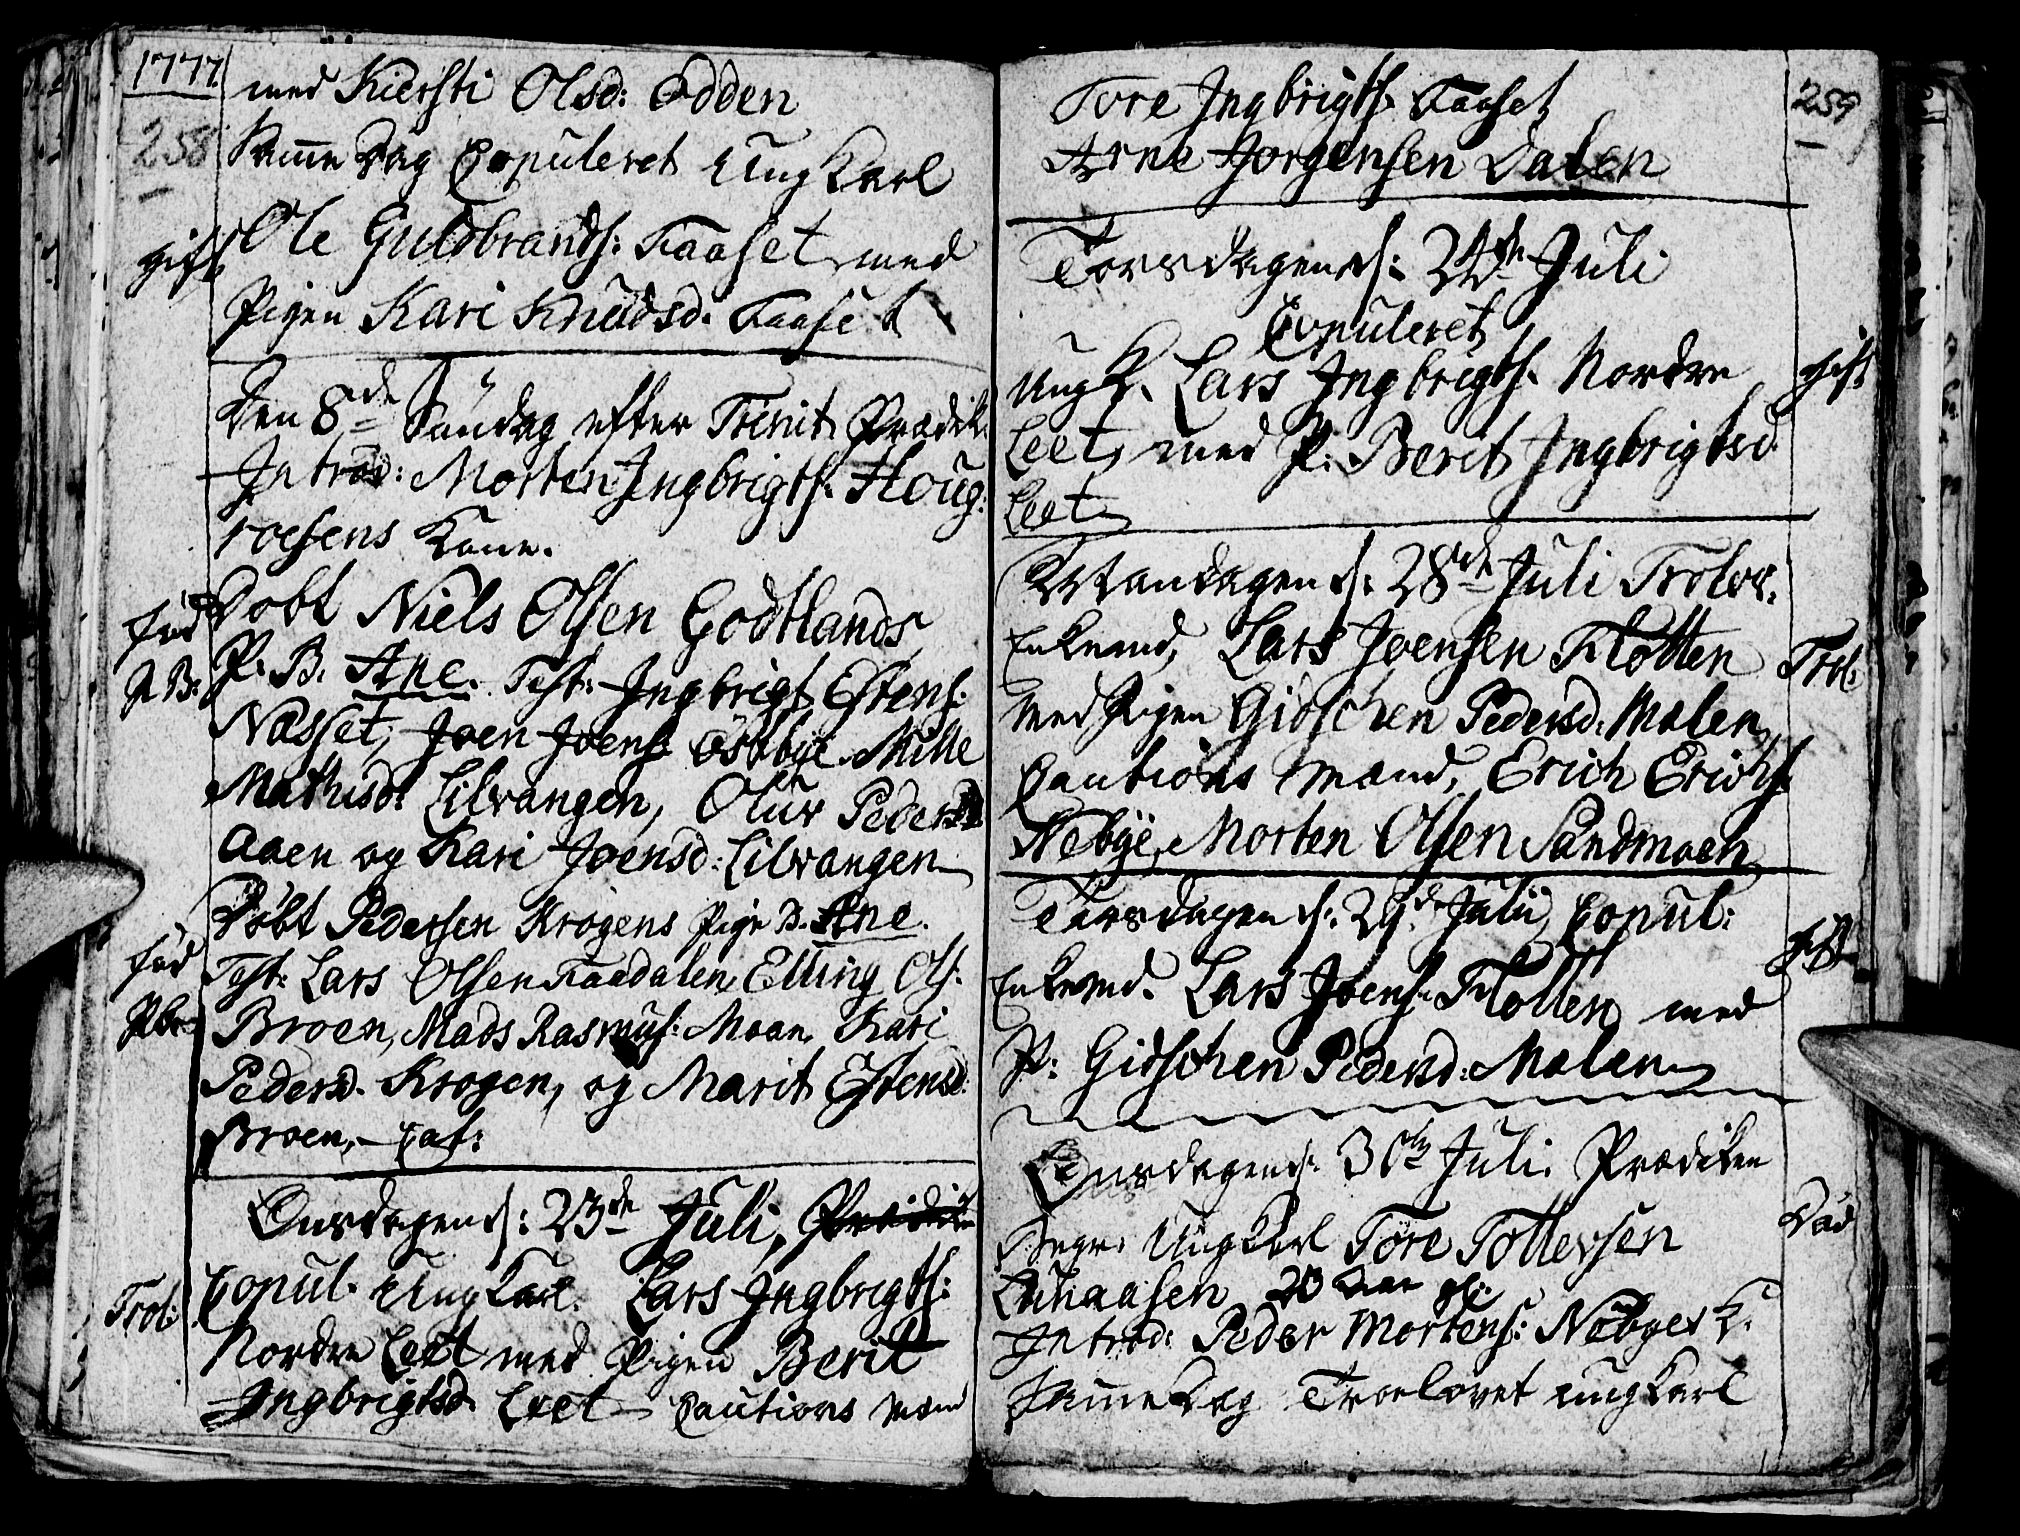 1777.
258
med Kiersti Olsd: Odden
Samme Dag Copuleret Ung Karl
gift Ole Guldbrands: Faaset med
Pigen Kari Knudsd. Faaset
Den 8de Søndag efter Trinit. Prædik.
Introd: Morten Ingbrigts. Houg-
roesens Kone.
fød Døbt Niels Olsen Godtlands
P. B: P. B. Ane. Test: Ingbrigt Estens:
Næsset, Joen Joens. Østbye Mille
Mathisd: Lilvangen, Oluv Pedersd.
Aaen og Kari Joensd: Lilvangen
fød Døbt Pedersen Krogens Pige B. Ane.
Test: Lars Olsen Faadalen Elling Ols:
Broen, Mads Rasmus: Moan, Kari
Pedersd. Krogen, og Marit Estensd:
Broen,
Onsdagen d: 23de Juli,
Trol: Copul. Ung Karl. Lars Ingbrigts:
Nordre Leet med Pigen Berit
Ingbrigtsd. Leet Cautions Mænd
259
Tore Ingbrigts. Faaset
Arne Jorgensen Dalen
Torsdagen d: 24de Juli
Copuleret
Ung K. Lars Ingbrigts. Nordre gift
Leet, med P: Berit Ingbrigtsd.
Leet
Mandagen d: 28de Juli Trolov.
Enkemd, Lars Joensen Flotten Trol:
med Pigen Gidschen Pedersd. Malen
Cautions Mænd, Erich Erichs.
Nebye, Morten Olsen Sandmoen
Torsdagen d: 29de Juli, Copul: gift
Enkemd. Lars Joens. Flotten med
P: Gidschen Pedersd: Malen
Onsdagen d. 30te Juli. Prædiken
Begr: Ung Karl Tore Tollevsen Død
20 Aar gl:
Introd: Peder Mortens: Nebyes K.
Samme Dag Troelovet ung Karl